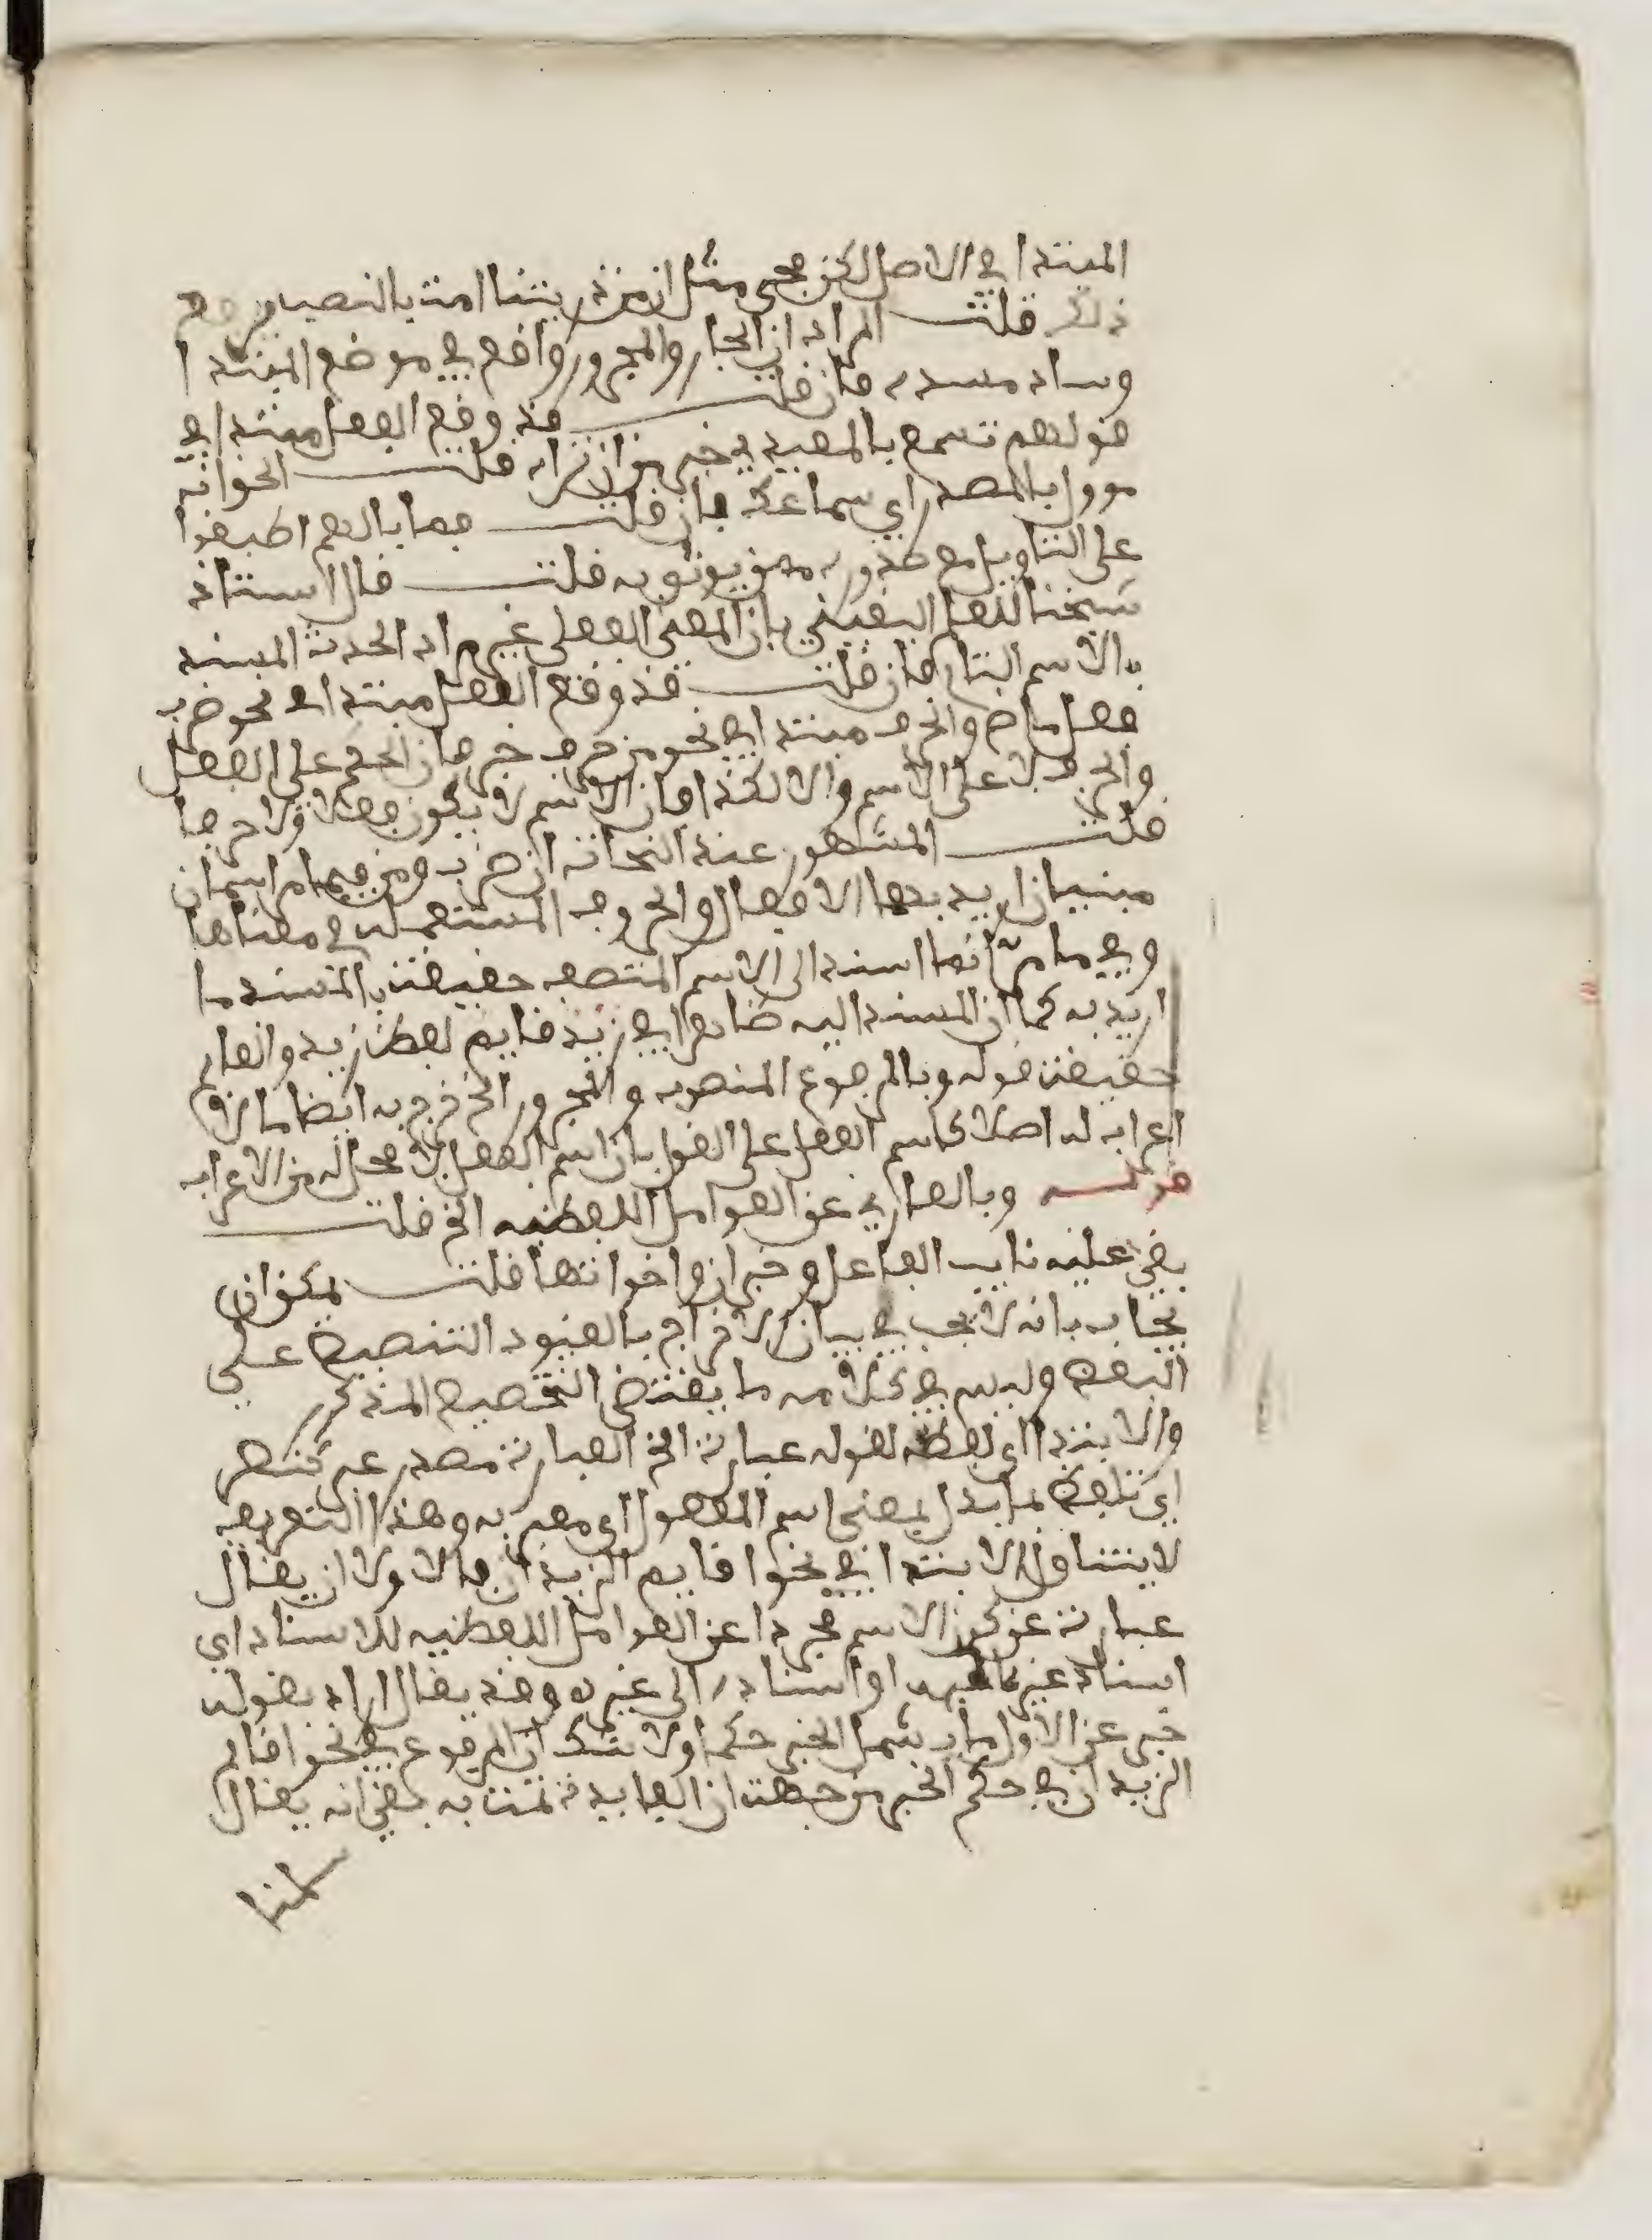 المبتدا في الاصل لكن يجي مثل ان من ذريتنا امت بالنصب
ذلك قلت المراد ان الجار والمجرور واقع في موضع المبتدا
وساد مسده فان قلت قد وقع الفعل مبتدا في
قولهم تسمع بالمعيدي خير من ان تراه قلت الجواب انه
موول بالمصدر اي سماعك فان قلت فما بالهم اطبقوا
على التاويل مع صدوره ممن يوثق به قلت قال الاستاذ
شيخنا للعلم اليقيني بان المعنى الفعلي غير مراد الحدث المسند
بالاسم التام فان قلت قد وقع الفعل مبتدا في نحو ضرب
فعل ماض والحرف مبتدا في نحو من حرف جر فان الحكم على الفعل
والحرف لا على الاسم والا لكذا فان الاسم لا يكون فعلا ولا حرفا
قلت المشهور عند النحاة ان ضرب ومن فيهما اسمان
مبنيان اريد بهما الافعال والحروف المستعمله في معناها
وفيه ما مر انما اسند الى الاسم المتصف حقيقة بالمسند ما
اريد به كما ان المسند اليه ظاهرا في زيد قايم لفظ زيد والقايم
حقيقة قوله وبالمرفوع المنصوب والمجرور الخ خرج به ايضا ما لا
اعراب له اصلا كاسم الفعل على القول بان اسم الفعل لا محل له من الاعراب
قولـــه وبالعاري عن العوامل اللفظيه الخ قلت
بقي عليه نايب الفاعل وخبر ان واخواتها قلت يمكن ان
يجاب بانه لا يجب في بيان الاخراج بالقيود التنصيص على
البعض وليس في كلامه ما يقتضي التخصيص المذكور
والابتدا اي لفظه لقوله عبارة الخ العبارة مصدر عبر كنصر
اي تلفظ بما يدل بمعنى اسم المفعول اي معبر به وهذا التعريف
لا يتناول الابتدا في نحو اقايم الزيدان فالاولا ان يقال
عبارة عن كون الاسم مجردا عن العوامل اللفظيه للاسناد اي
اسناد غيره اليه او اسناده الى غيره وقد يقال اراد بقوله
خبر عن الاول ما يشمل الخبر حكما ولا شك ان المرفوع في نحو اقايم
الزيدان في حكم الخبر من جهة ان الفايدة تمت به بقي انه يقال